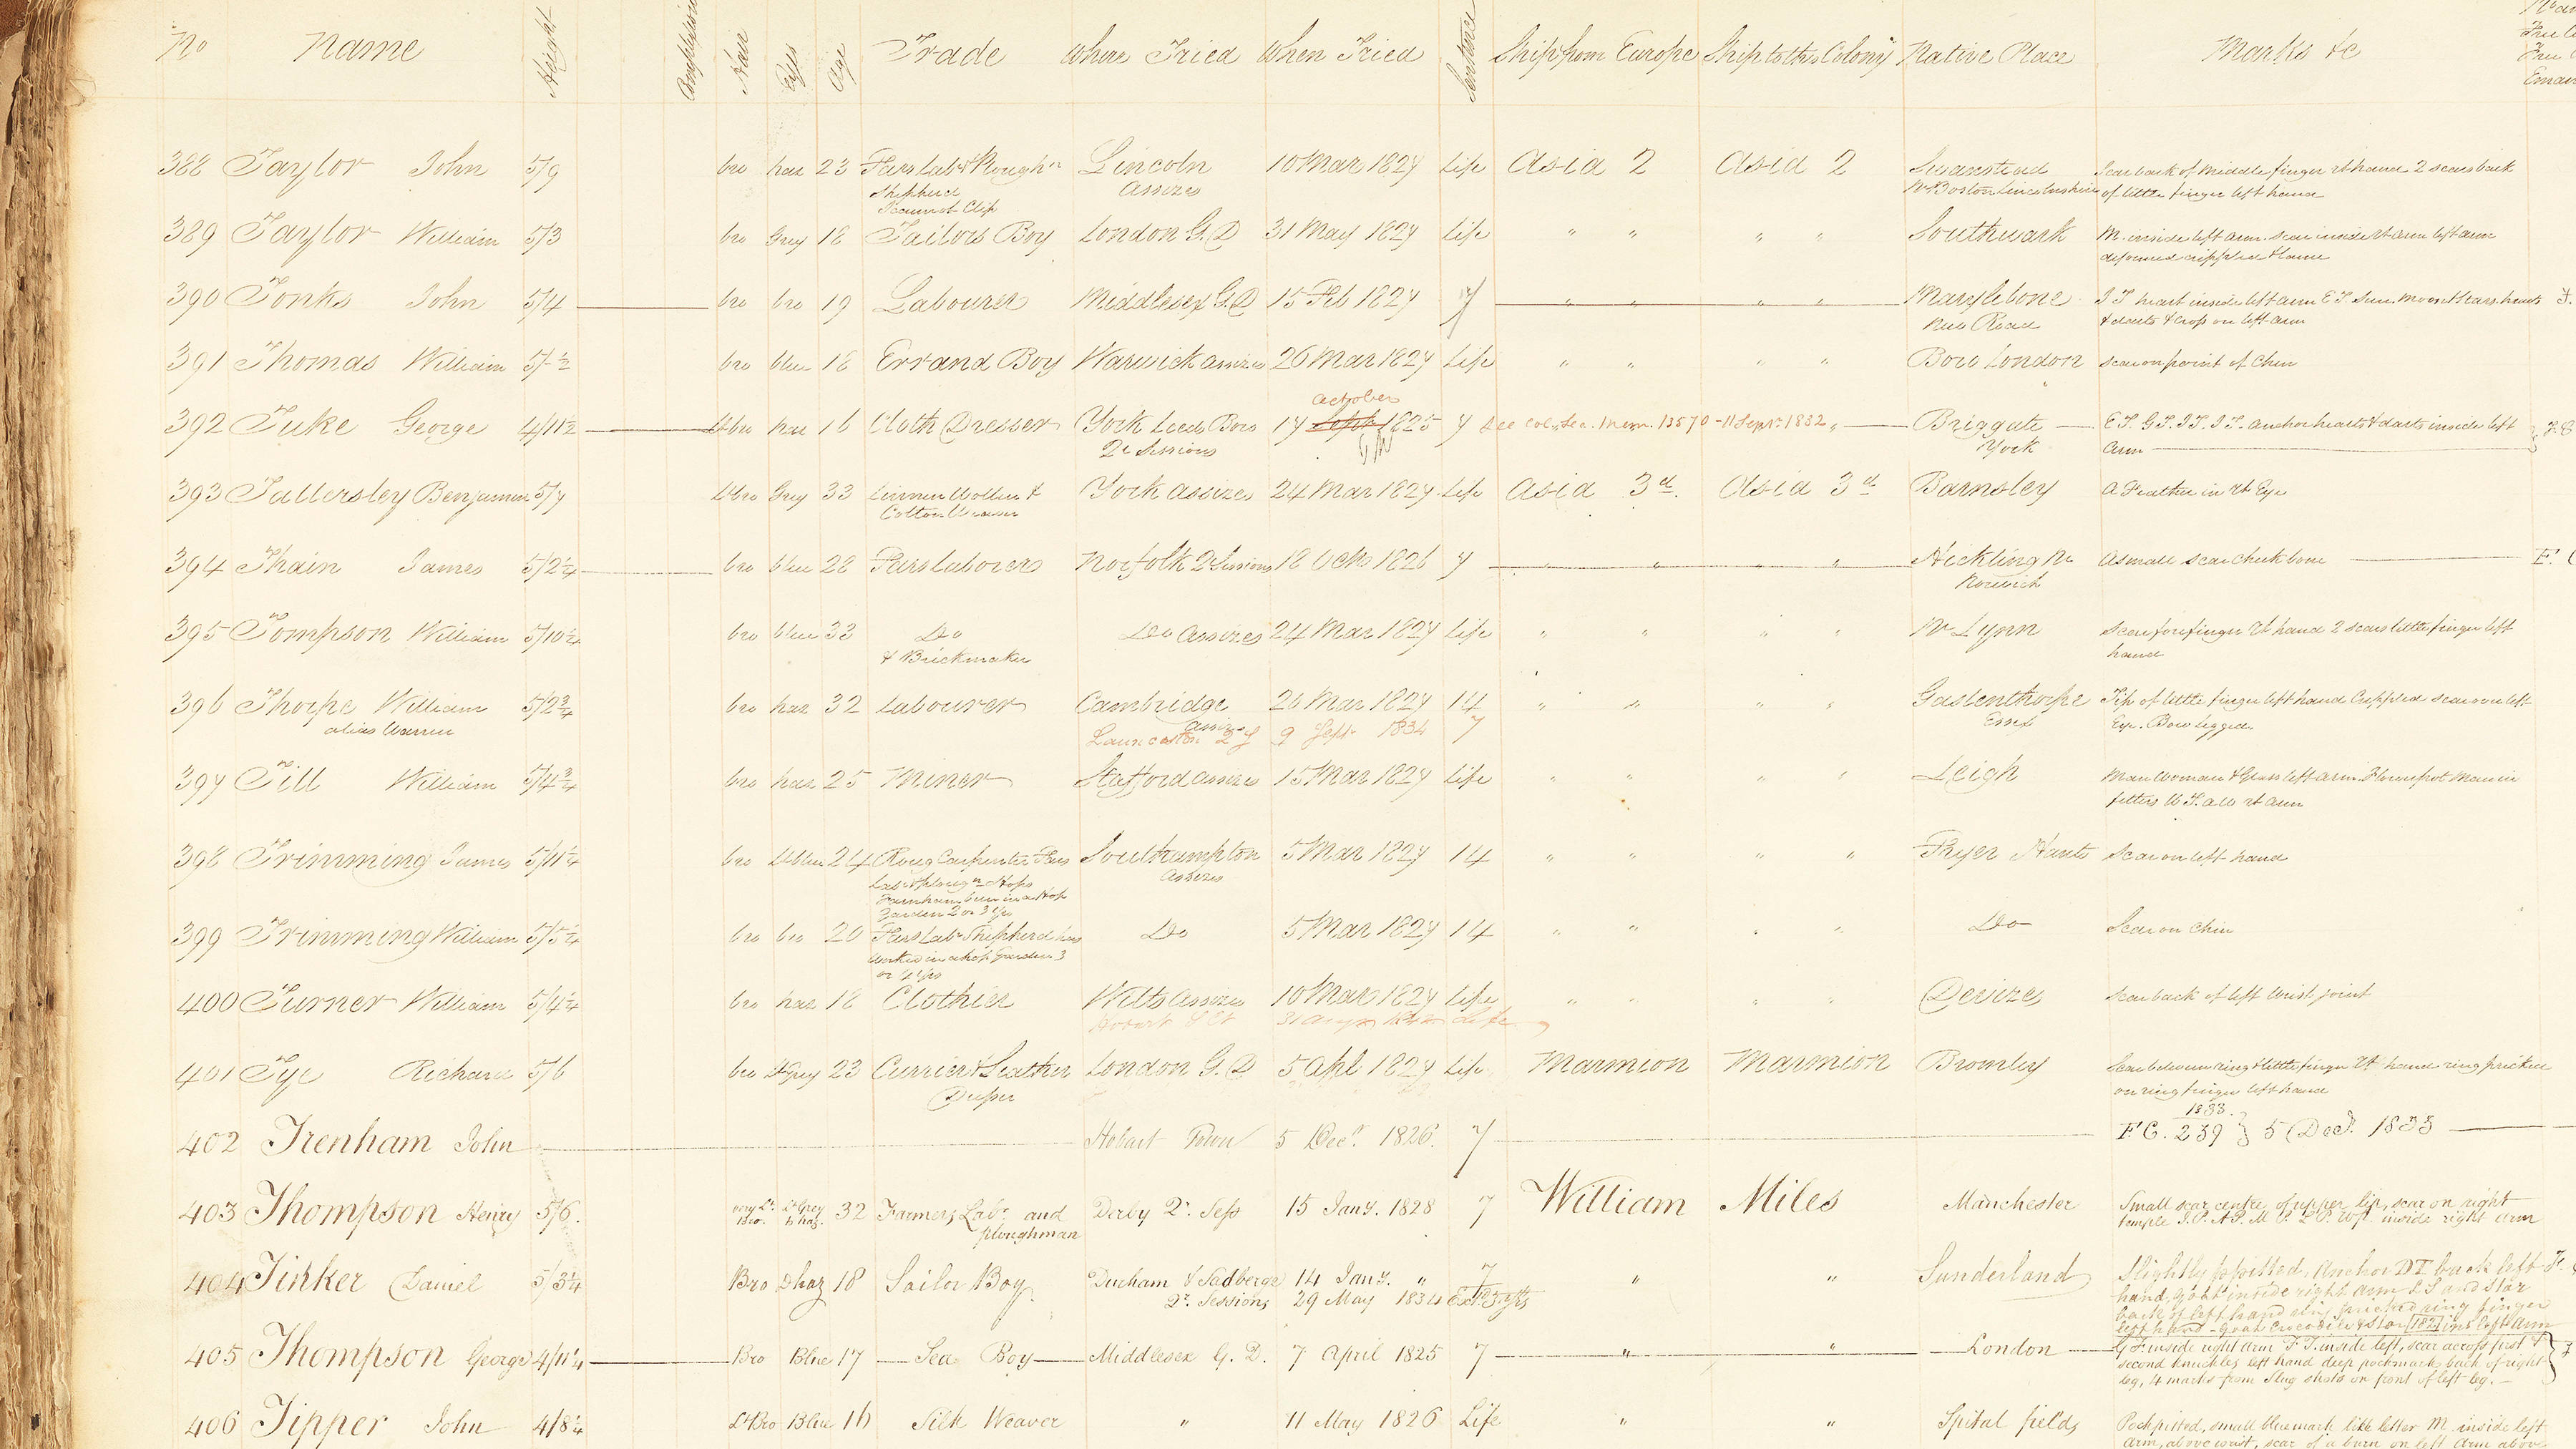 No Name Height Hair Eyes Age Trade Where Tried When Tried Sentence Ship from Europe Ship to this Colony Native Place Marks &c
388 Taylor John 5/9 bro haz 23 Fars Labr & Ploughn Lincoln 10 Mar 1827 Life Asia 2 Asia 2 Scar back of Middle finger rt hand 2 scars back
Shepherd Assizes Nr Boston Lincolnshire of little finger left hand
cannot Clip
389 Taylor William 5/3 bro Grey 18 Tailors Boy London G.D 31 May 1827 Life " " " " Southwark M. inside left arm. Scar inside rt arm left arm
deformed crippled & lame
390 Tonks John 5/4 bro bro 19 Labourer Middlesex G.D 15 Feb 1827 7 " " " " Marylebone J T heart inside left arm E T Sun Moon & Stars hearts
New Road & darts & cross on left arm
391 Thomas William 5/-½ bro blue 18 Errand Boy Warwick assizes 26 Mar 1827 Life " " " " Boro London scar on point of Chin
October
392 Tuke George 4/11½ Dbro haz 16 Cloth Dresser York Leeds Boro 17 Sept 1825 7 See Col. Sec. Mem. 13570 - 11 Sept. 1832 " Briggate E T. G T. J T. J T. anchor hearts & darts inside left
Qr Sessions York arm
393 Tattersley Benjamin 5/7 Dbro Grey 33 Linnen Wollen & York assizes 24 Mar 1827 Life Asia 3d. Asia 3d Barnsley A Feather in rt Eye
Cotton Weaver
394 Thain James 5/2¼ bro blue 28 Fars Labourer Norfolk Q Sessions 18 Octr 1826 7 " " " " Hickling Nr A small scar Cheek bone
Norwich
395 Tompson William 5/10¼ bro blue 33 Do Do Assizes 24 Mar 1827 Life " " " " Nr Lynn Scar forefinger rt hand 2 scars little finger left
& Brickmaker hand
396 Thorpe William 5/2¾ bro haz 32 Labourer Cambridge 26 Mar 1827 14 " " " " Gastenthorpe Tip of little finger left hand Crippled scar over left
alias Warren assizes Essex Eye. Bow legged
Launceston Q S 9 Sept 1834 7
397 Till William 5/4¾ bro haz 25 Miner Stafford assizes 15 Mar 1827 Life " " " " Leigh Man Woman & Glass left arm. Flowerpot Man in
fetters W T. A W rt arm
398 Trimming James 5/11¼ bro Dblue 24 Roug Carpenter Fars Southampton 5 Mar 1827 14 " " " " Fryer Hants Scar on left hand
Labr & plougn Hops Assizes
Farnham been in a Hop
Garden 2 or 3 Yrs
399 Trimming William 5/5¼ bro bro 20 Fars Labr Shepherd has Do 5 Mar 1827 14 " " " " Do Scar on Chin
worked in a hop Garden 3
or 4 Yrs
400 Turner William 5/4¼ bro haz 18 Clothier Wilts Assizes 10 Mar 1827 Life " " " " Devizes Scar back of left Wrist joint
Hobart S Ct 31 1842 Life
401 Tye Richard 5/6 bro DGrey 23 Currier & Leather London G.D 5 Apl 1827 Life Marmion Marmion Bromley Scar between ring & little finger rt hand ring pricked
Dresser on ring finger left hand
1833.
402 Trenham John Hobart Town 5 Decr. 1826. 7 F C. 239 } 5 Dect. 1833
403 Thompson Henry 5/6. very Lt. Lt Grey 32 Farmers Labr. and Derby Qr. Sess 15 Jany. 1828 7 William Miles Manchester Small scar centre of upper lip, scar on right
Bro. to haz. ploughman temple J. P. A P. M P. L P. W P. inside right arm
404 Tinker Daniel 5/3¼ Bro Dhaz 18 Sailor Boy Durham & Sadberge 14 Jany. " 7 " " Sunderland Slightly p pitted, Anchor D T back left
Qr. Sessions 29 May 1834 Ext. 3 yrs hand, inside right arm L S and Star
back of left hand ring pricked ring finger
left hand - Goat Crocodile & Star 1821 ins left arm
405 Thompson George 4/11¼ Bro Blue 17 Sea Boy Middlesex G. D. 7 April 1825 7 " " London G T. inside right arm F T. inside left, scar across first &
second knuckles left hand deep pockmark back of right
leg, 4 marks from Slug shots on front of left leg.
406 Tipper John 4/8¼ LtBro Blue 16 Silk Weaver " 11 May 1826 Life " " Spital fields Pockpitted, small blue mark like letter M inside left
arm, above wrist, scar of a burn on left arm above